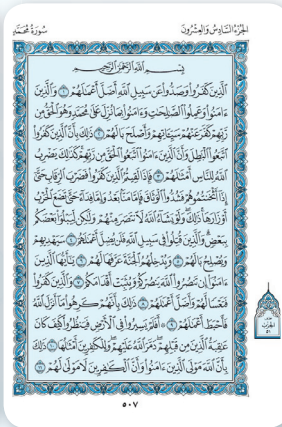 الجزء السادس والعشرون
سورة محمد
بسم الله الرحمن الرحيم
الذين كفروا وصدوا عن سبيل الله أضل أعمالهم ١ والذين
ءامنوا وعملوا الصالحات وءامنوا بما نزل على محمد وهو الحق من
ربهم كفر عنهم سيئاتهم وأصلح بالهم ٢ ذلك بأن الذين كفروا
اتبعوا الباطل وأن الذين ءامنوا اتبعوا الحق من ربهم كذلك يضرب
الله للناس أمثالهم ٣ فإذا لقيتم الذين كفروا فضرب الرقاب حتى
إذا أثخنتموهم فشدوا الوثاق فإما منا بعد وإما فداء حتى تضع الحرب
أوزارها ذلك ولو يشاء الله لانتصر منهم ولكن ليبلوا بعضكم
ببعض والذين قتلوا في سبيل الله فلن يضل أعمالهم ٤ سيهديهم
ويصلح بالهم ٥ ويدخلهم الجنة عرفها لهم ٦ يأيها الذين
ءامنوا إن تنصروا الله ينصركم ويثبت أقدامكم ٧ والذين كفروا
فتعسا لهم وأضل أعمالهم ٨ ذلك بأنهم كرهوا ما أنزل الله
فأحبط أعمالهم ٩ أفلم يسيروا في الأرض فينظروا كيف كان
عاقبة الذين من قبلهم دمر الله عليهم وللكافرين أمثالها ١٠ ذلك
بأن الله مولى الذين ءامنوا وأن الكافرين لا مولى لهم ١١
الحزب
٥١
٥٠٧